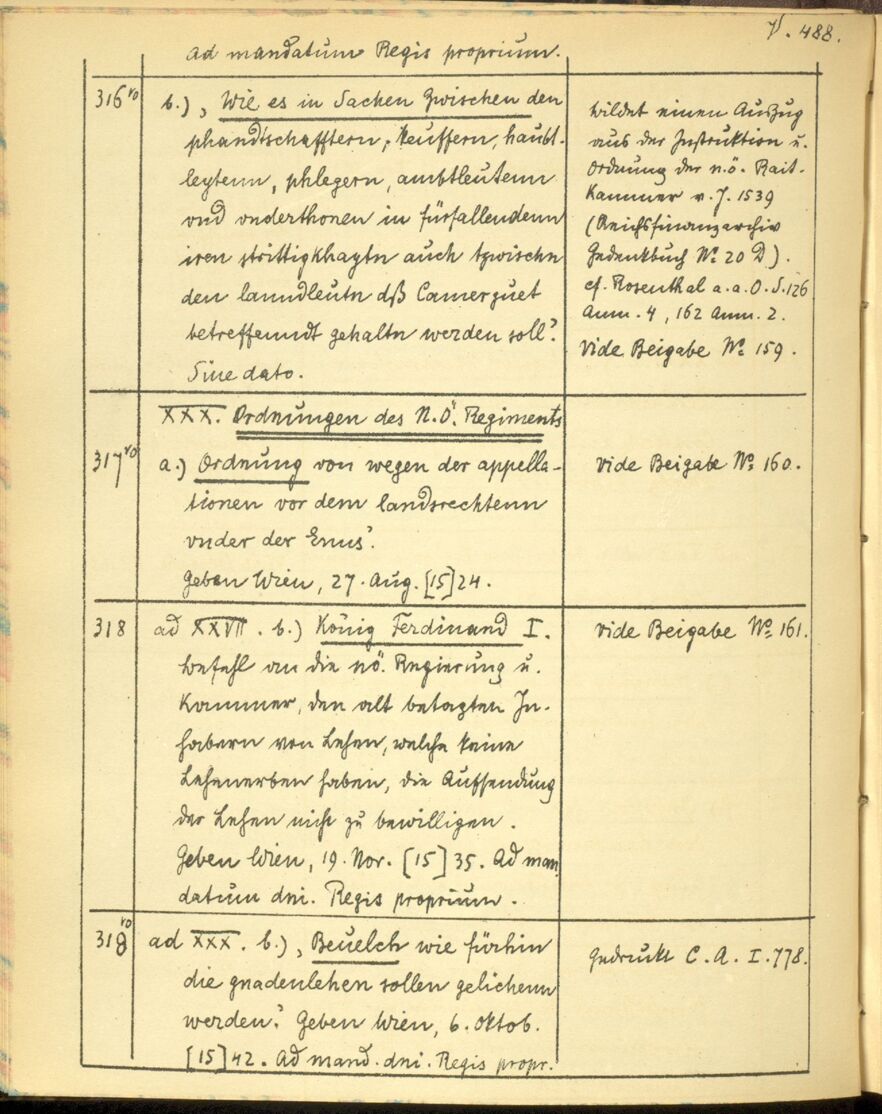 V. 488.
ad mandatum Regis proprium.
316 vo
b.) ‚Wie es in Sachen Zwischen den
phandtschafftern, keuffern, haubt-
leytenn, phlegern, ambtleutenn
vnd vnderthonen in fürfallendenn
iren strittigkhaytn auch tzwischn
den lanndleutn dß Camerguet
betreffenndt gehaltn werden soll?
Sine dato.
bildet einen Auszug
aus der Instruktion u.
Ordnung der n.ö. Rait-
kammer v. J. 1539
(Reichsfinanzarchiv
Gedenkbuch No. 20 D).
cf. Rosenthal a. a. O. S. 126
Anm. 4, 162 Anm. 2.
Vide Beigabe No. 159.
XXX. Ordnungen des N.Ö. Regiments
317 vo
a.) Ordnung von wegen der appella-
tionen vor dem landsrechtenn
vnder der Enns'.
Geben Wien, 27. Aug. [15]24.
Vide Beigabe No. 160.
318
ad XXVII. b.) König Ferdinand I.
Befehl an die nö. Regierung u.
Kammer, den alt betagten In-
habern von Lehen, welche keine
Lehenerben haben, die Aufsendung
der Lehen nicht zu bewilligen.
Geben Wien, 19. Nov. [15]35. Ad man
datum dni. Regis proprium.
Vide Beigabe No. 161.
318 vo
ad XXX. b.) ‚Beuelch wie fürhin
die gnadenlehen sollen gelichenn
werden.' Geben Wien, 6. Oktob.
[15]42. Ad mand. dni. Regis propr.
Gedruckt C. A. I. 778.